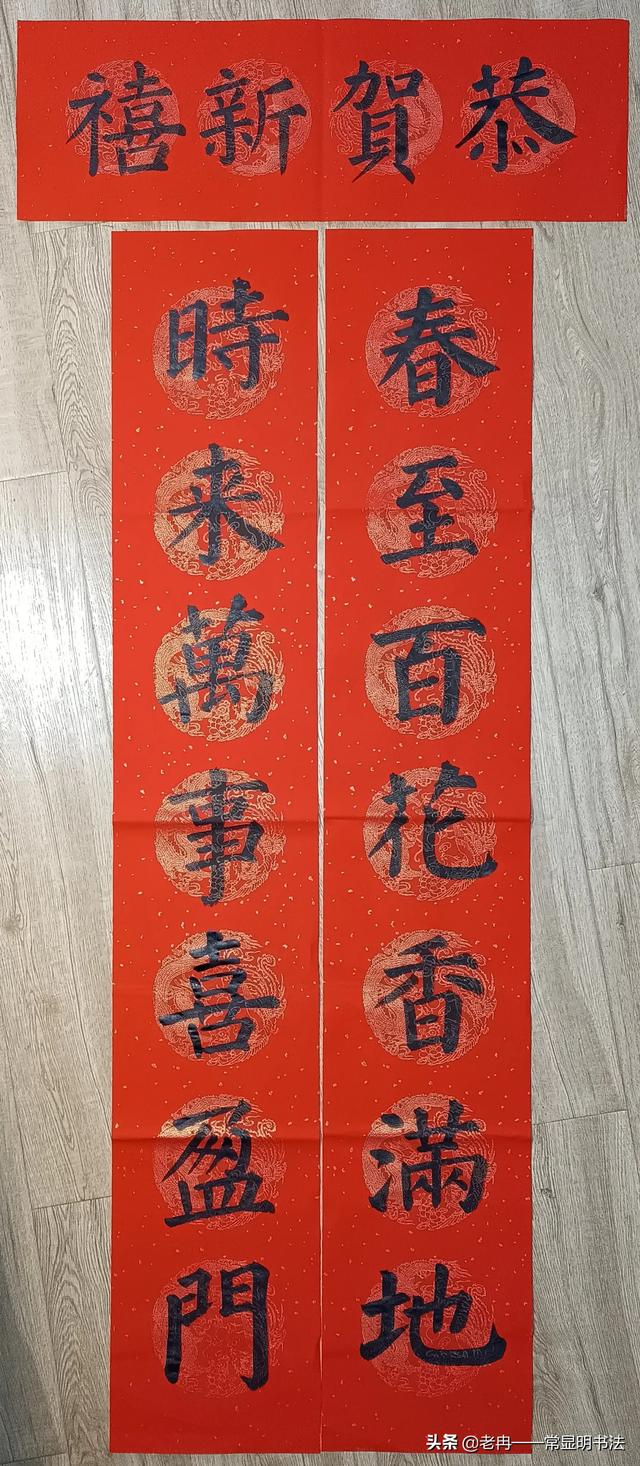 恭賀新禧
春至百花香滿地
時来萬事喜盈門
头条 @老冉——常显明书法